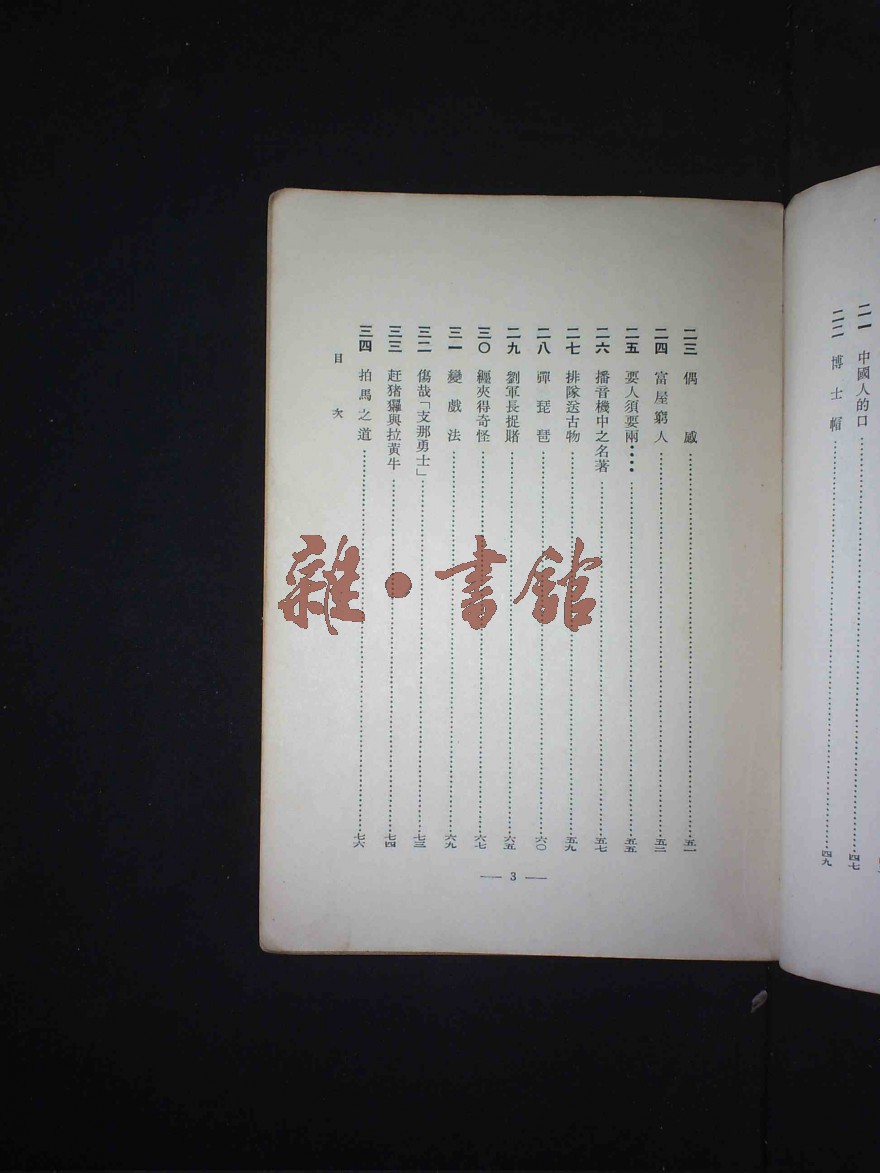 二一 中國人的口 四七
二二 博士帽 四九
二三 偶感 五一
二四 富屋窮人 五三
二五 要人須要兩•••• 五五
二六 播音機中之名著 五七
二七 排隊送古物 五九
二八 彈琵琶 六〇
二九 劉軍長捉賭 六五
三〇 纏夾得奇怪 六七
三一 變戲法 六九
三二 傷哉「支那勇士」 七三
三三 赶猪玀與拉黃牛 七四
三四 拍馬之道 七六
目次
— 3 —
雜·書館